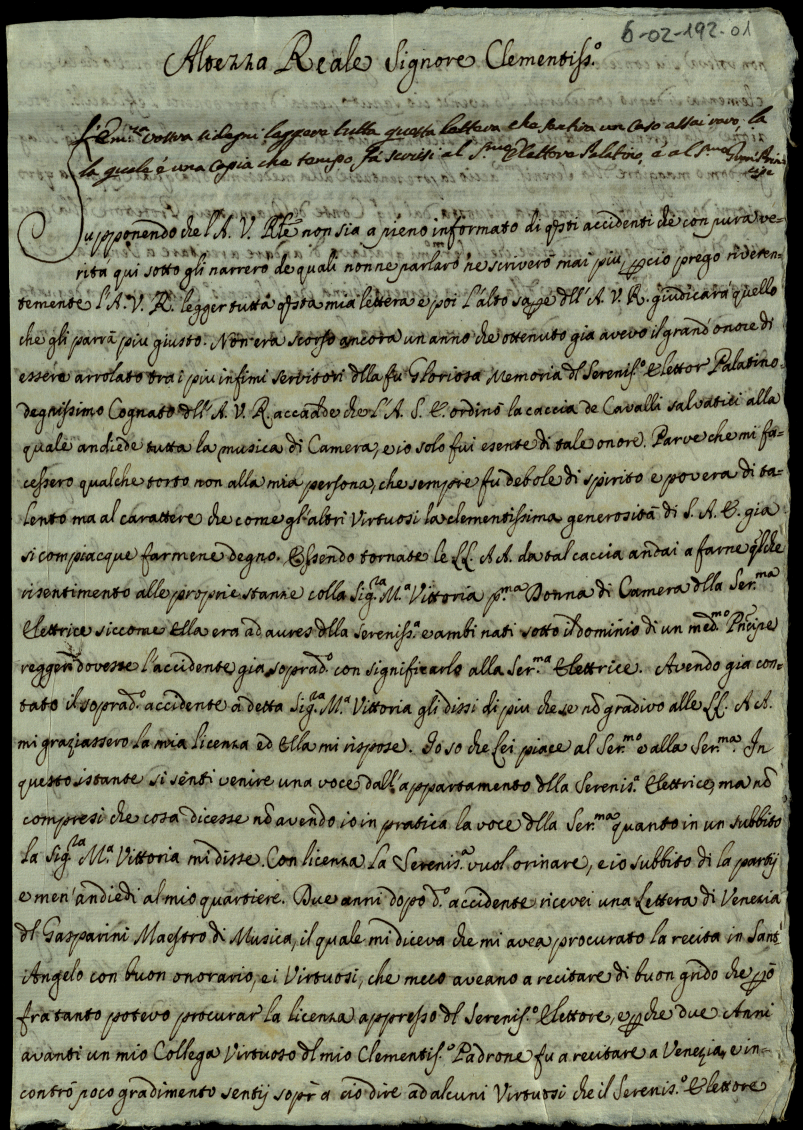 6-02-192-01
Altezza Reale Signore Clementiss.o
vostra si degni leggere tutta questa lettera che sentira un caso assai raro, la
la quale é una copia che tempo fa scrissi al S.mo Elettore Palatino, e al S.mo
Supponendo che l'A. V. Rle non sia a pieno informato di qsti accidenti che con pura ve-
rita qui sotto gli narrero de quali non ne parlarò ne scriverò mai piu, ꝑcio prego riveren-
temente l'A. V. R. legger tutta qsta mia lettera e poi l'alto dll'A. V. R. giudicará quello
che gli parrà piu giusto. Non era scorso ancora un anno che ottenuto gia avevo il grand'onore di
essere arrolato tra i piu infimi servitori dlla fu Gloriosa Memoria dl Sereniss.o Elettor Palatino
degnissimo Cognato dll'A. V. R. accadde che l'A. S. E. ordinò la caccia de Cavalli salvatici alla
quale andiede tutta la musica di Camera, e io solo fui esente di tale onore. Parve che mi fa-
cessero qualche torto non alla mia persona, che sempre fu debole di spirito e povera di ta-
lento ma al carattere che come gl'altri Virtuosi la clementissima generosità di S. A. E. gia
si compiacque farmene degno. Essendo tornate le LL. AA. da tal caccia andai a farne qlche
risentimento alle proprie stanze colla Sig.ra M.a Vittoria p.ma Donna di Camera dlla Ser.ma
Elettrice siccome Ella era ad aures dlla Sereniss.a e ambi nati sotto il dominio di un med.mo Pncipe
dovesse l'accidente gia soprad.o con significarlo alla Ser.ma Elettrice. Avendo gia con-
tato il soprad.o accidente a detta Sig.ra M.a Vittoria gli dissi di piu che se nõ gradivo alle LL. AA.
mi graziassero la mia licenza ed Ella mi rispose. Io so che Lei piace al Ser.mo e alla Ser.ma. In
questo istante si sentì venire una voce dall'appartamento dlla Sereniss.a Elettrice, ma nõ
compresi che cosa dicesse nõ avendo io in pratica la voce dlla Ser.ma quanto in un subbito
la Sig.ra M.a Vittoria mi disse. Con licenza La Sereniss.a vuol orinare, e io subbito di la partij
e men'andiedi al mio quartiere. Due anni dopo d.o accidente ricevei una Lettera di Venezia
dl Gasparini Maestro di Musica, il quale mi diceva che mi avea procurato la recita in Sant'
Angelo con buon onorario, e i Virtuosi, che meco aveano a recitare di buon grido che ꝑò
fra tanto potevo procurar la licenza appresso dl Sereniss.o Elettore, e ꝑche due Anni
avanti un mio Collega Virtuoso dl mio Clementiss.o Padrone fu a recitare a Venezia, e in-
contrò poco gradimento sentij sopra cio dire ad alcuni Virtuosi che il Sereniss.o Elettore